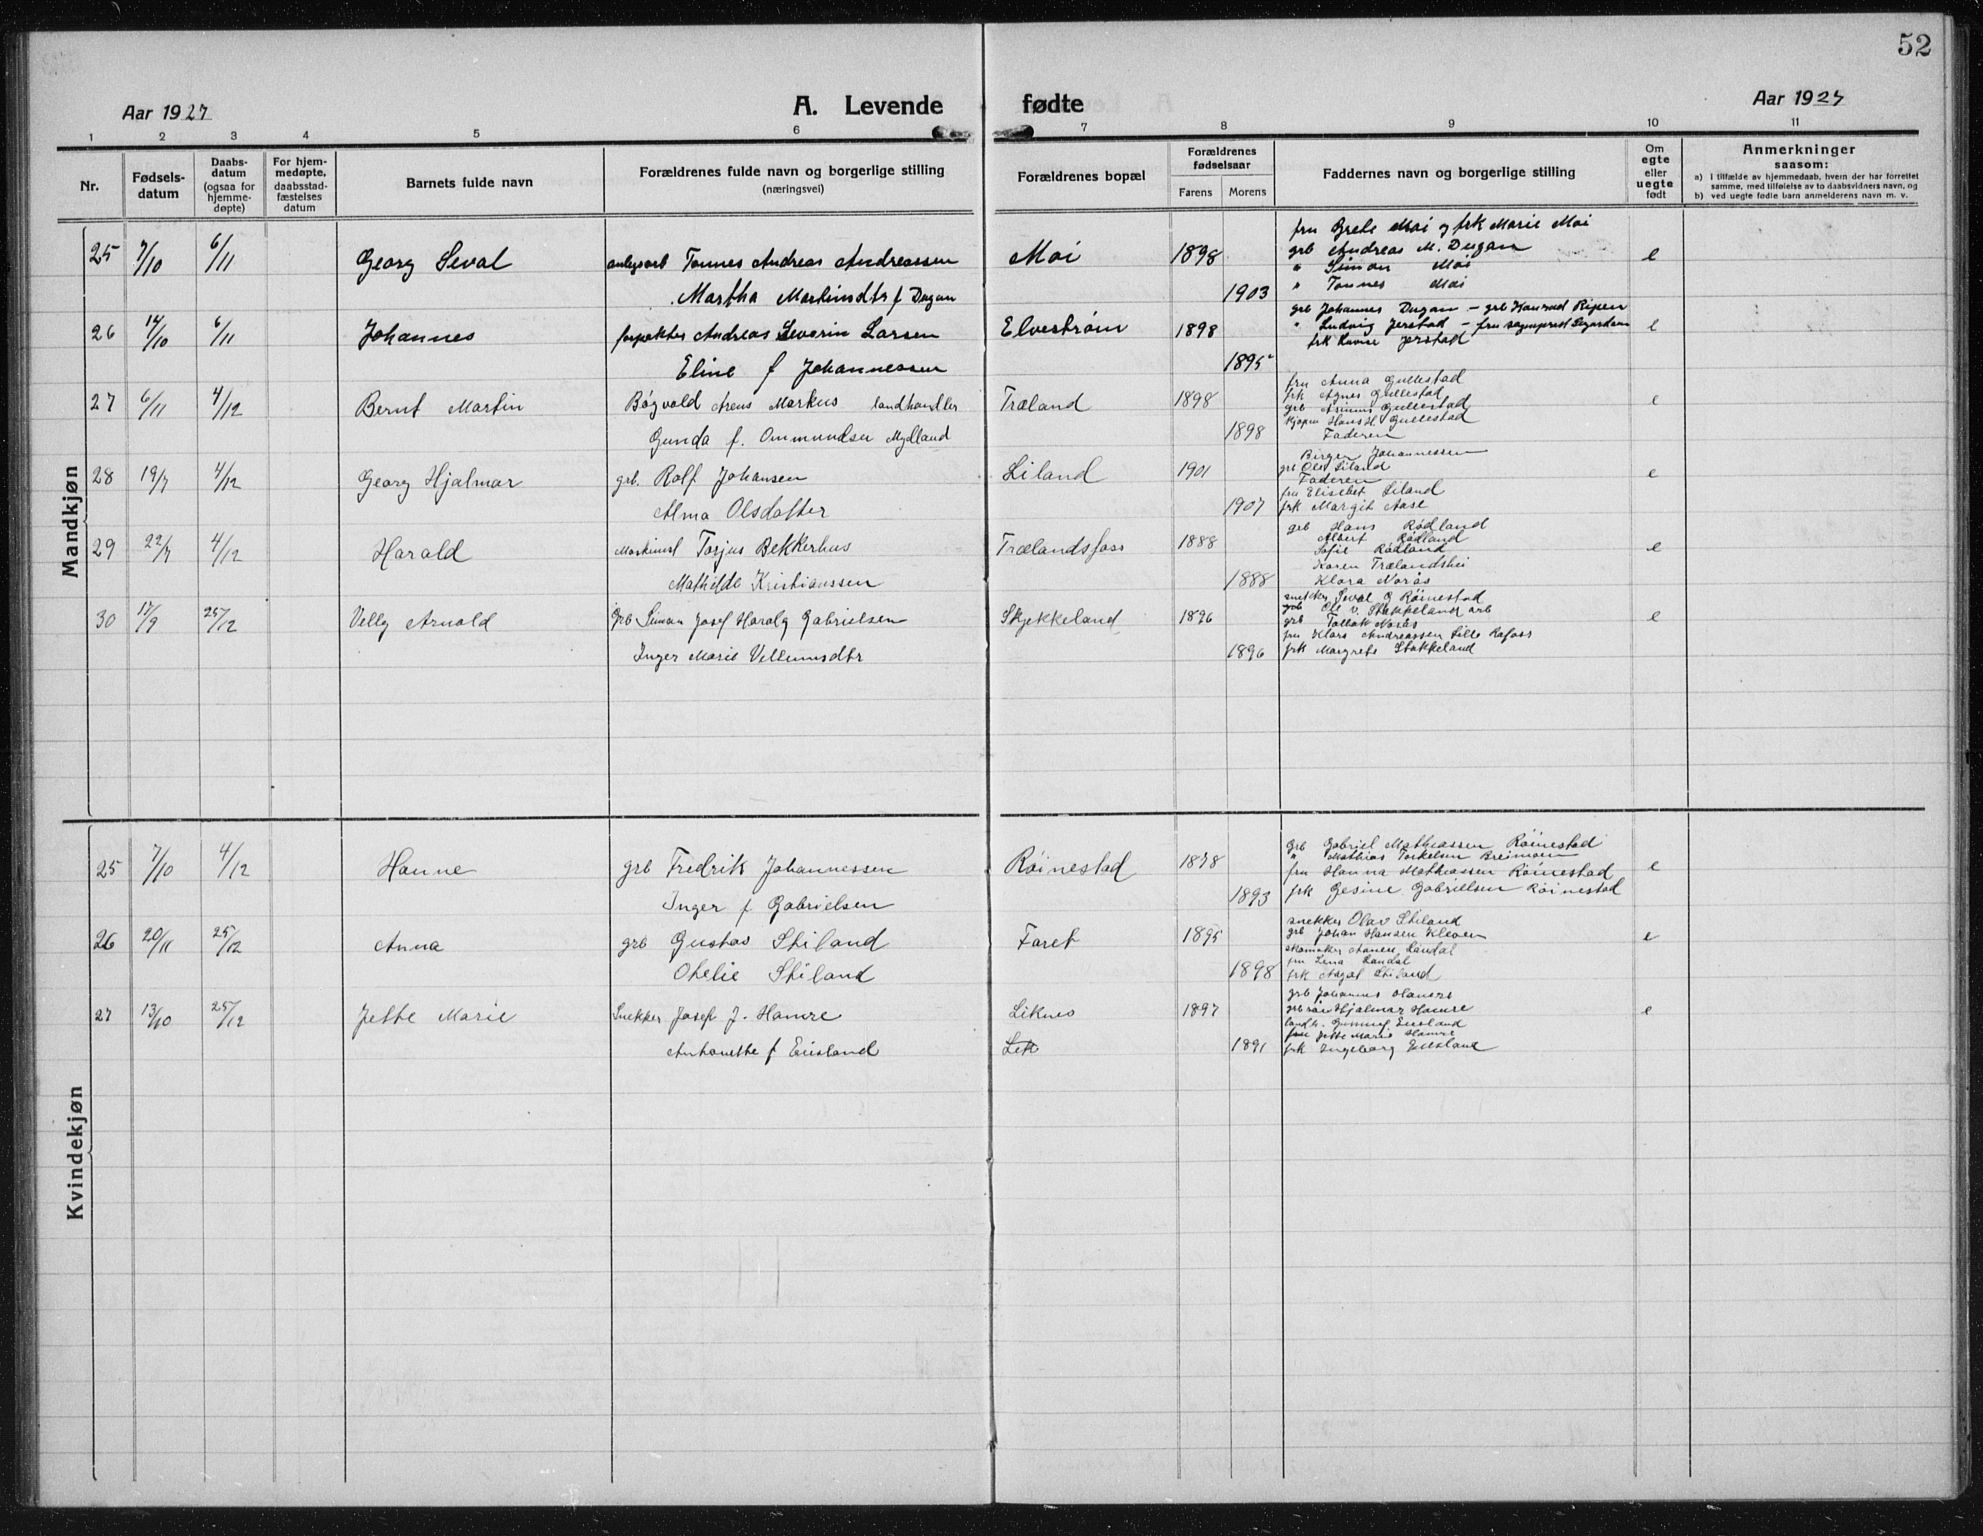 52
Aar 1927 A. Levende fødte Aar 1927
1 2 3 4 5 6 7 8 9 10 11
Nr. Fødsels-datum Daabs-datum (ogsaa for hjemme-døpte) For hjem-medøpte, daabsstad-fæstelses datum Barnets fulde navn Forældrenes fulde navn og borgerlige stilling (næringsvei) Forældrenes bopæl Forældrenes fødselsaar Farens Morens Faddernes navn og borgerlige stilling Om egte eller uegte født Anmerkninger saasom:
a) I tilfælde av hjemmedaab, hvem der har forrettet samme, med tilføielse av to daabsvidners navn, og
b) ved uegte fødte barn anmelderens navn m. v.
Mandkjøn
25 7/10 6/11 Georg Seval Tønnes Andreas Andreassen Moi 1898 fru Grete Moi og frk Marie Moi e
grb Andreas M. Dugan
" Simon Moi
Martha Markusdtr f Dugan 1903 " Tønnes Moi
26 14/10 6/11 Johannes forpakter Andreas Severin Larsen Elvestrøm 1898 grb Johannes Dugan – grb Konrad Ripen e
" Ludvig Jerstad – fru
frk Jerstad
Eline f Johannessen 1895
27 6/11 4/12 Bernt Martin Bøgvald Arens Markus landhandler Træland 1898 fru Anna Gullestad e
frk Agnes Gullestad
grb Gullestad
Hans H. Gullestad
Gunda f. Ommundsen Mydland 1898 Faderen
28 19/7 4/12 Georg Hjalmar grb. Rolf Johansen Liland 1901 Birger Johannessen e
grb Ole Liland
Faderen
fru Elisebet Liland
Alma Olsdatter 1907 frk Margit Aase
29 22/7 4/12 Harald Maskinist Torjus Bekkerhus Trælandsfoss 1888 grb Hans Rødland e
Albert Rødland
Sofie Rødland
Karen Trælandshei
Mathilde Kristianssen 1888 Klara Norås
30 17/9 25/12 Velly Arnold Grb Simon Josef Harald Gabrielsen Skjekkeland 1896 snekker Seval G Røinestad e
grb Ole V. Stakkeland
grb Tallak Norås
fru Klara Andreassen Lille Rafoss
Inger Marie Vellemsdtr 1896 frk Margrete Stakkeland
Kvindekjøn
25 7/10 4/12 Hanne grb Fredrik Johannessen Røinestad 1878 grb Gabriel Mathiassen Røinestad e
" Mathias Torkelsen Breimoen
fru Hanna Mathiassen Røinestad
Inger f Gabrielsen 1893 frk Gesine Gabrielsen Røinestad
26 20/11 25/12 Anna grb Gustav Stiland Faret 1895 snekker Olav Stiland e
grb Johan Hansen Kleven
skomaker Landal
fru Lina Landal
Otelie Stiland 1898 frk Stiland
27 13/10 25/12 Jette Marie Snekker Josef J. Hamre Liknes 1897 grb Johannes e
Hjalmar Hamre
landh.
fru Jette Marie Hamre
Antonette f Eiesland Lik 1891 frk Ingeborg Eiesland